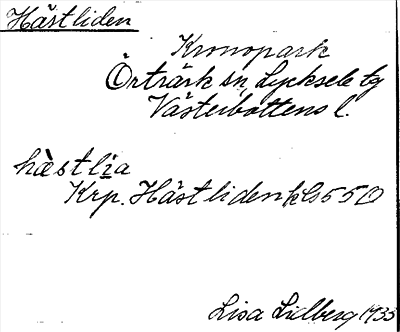 Hästliden
Kronopark
Örträrk sn, Lycksele tg
Västerbottens l.
hὲstlia
Krp. Hästliden kls 5 5 0
Lisa Lidberg 1935